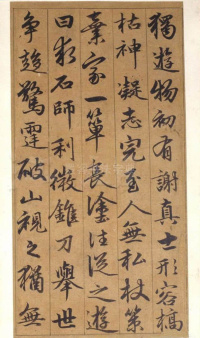 獨遊物初有謝真士形容槁
枯神凝志完至人無私杖策
棄家一簞長塗往從之遊
曰我石師利徼錐刀舉世
争趍驚霆破山視之猶無